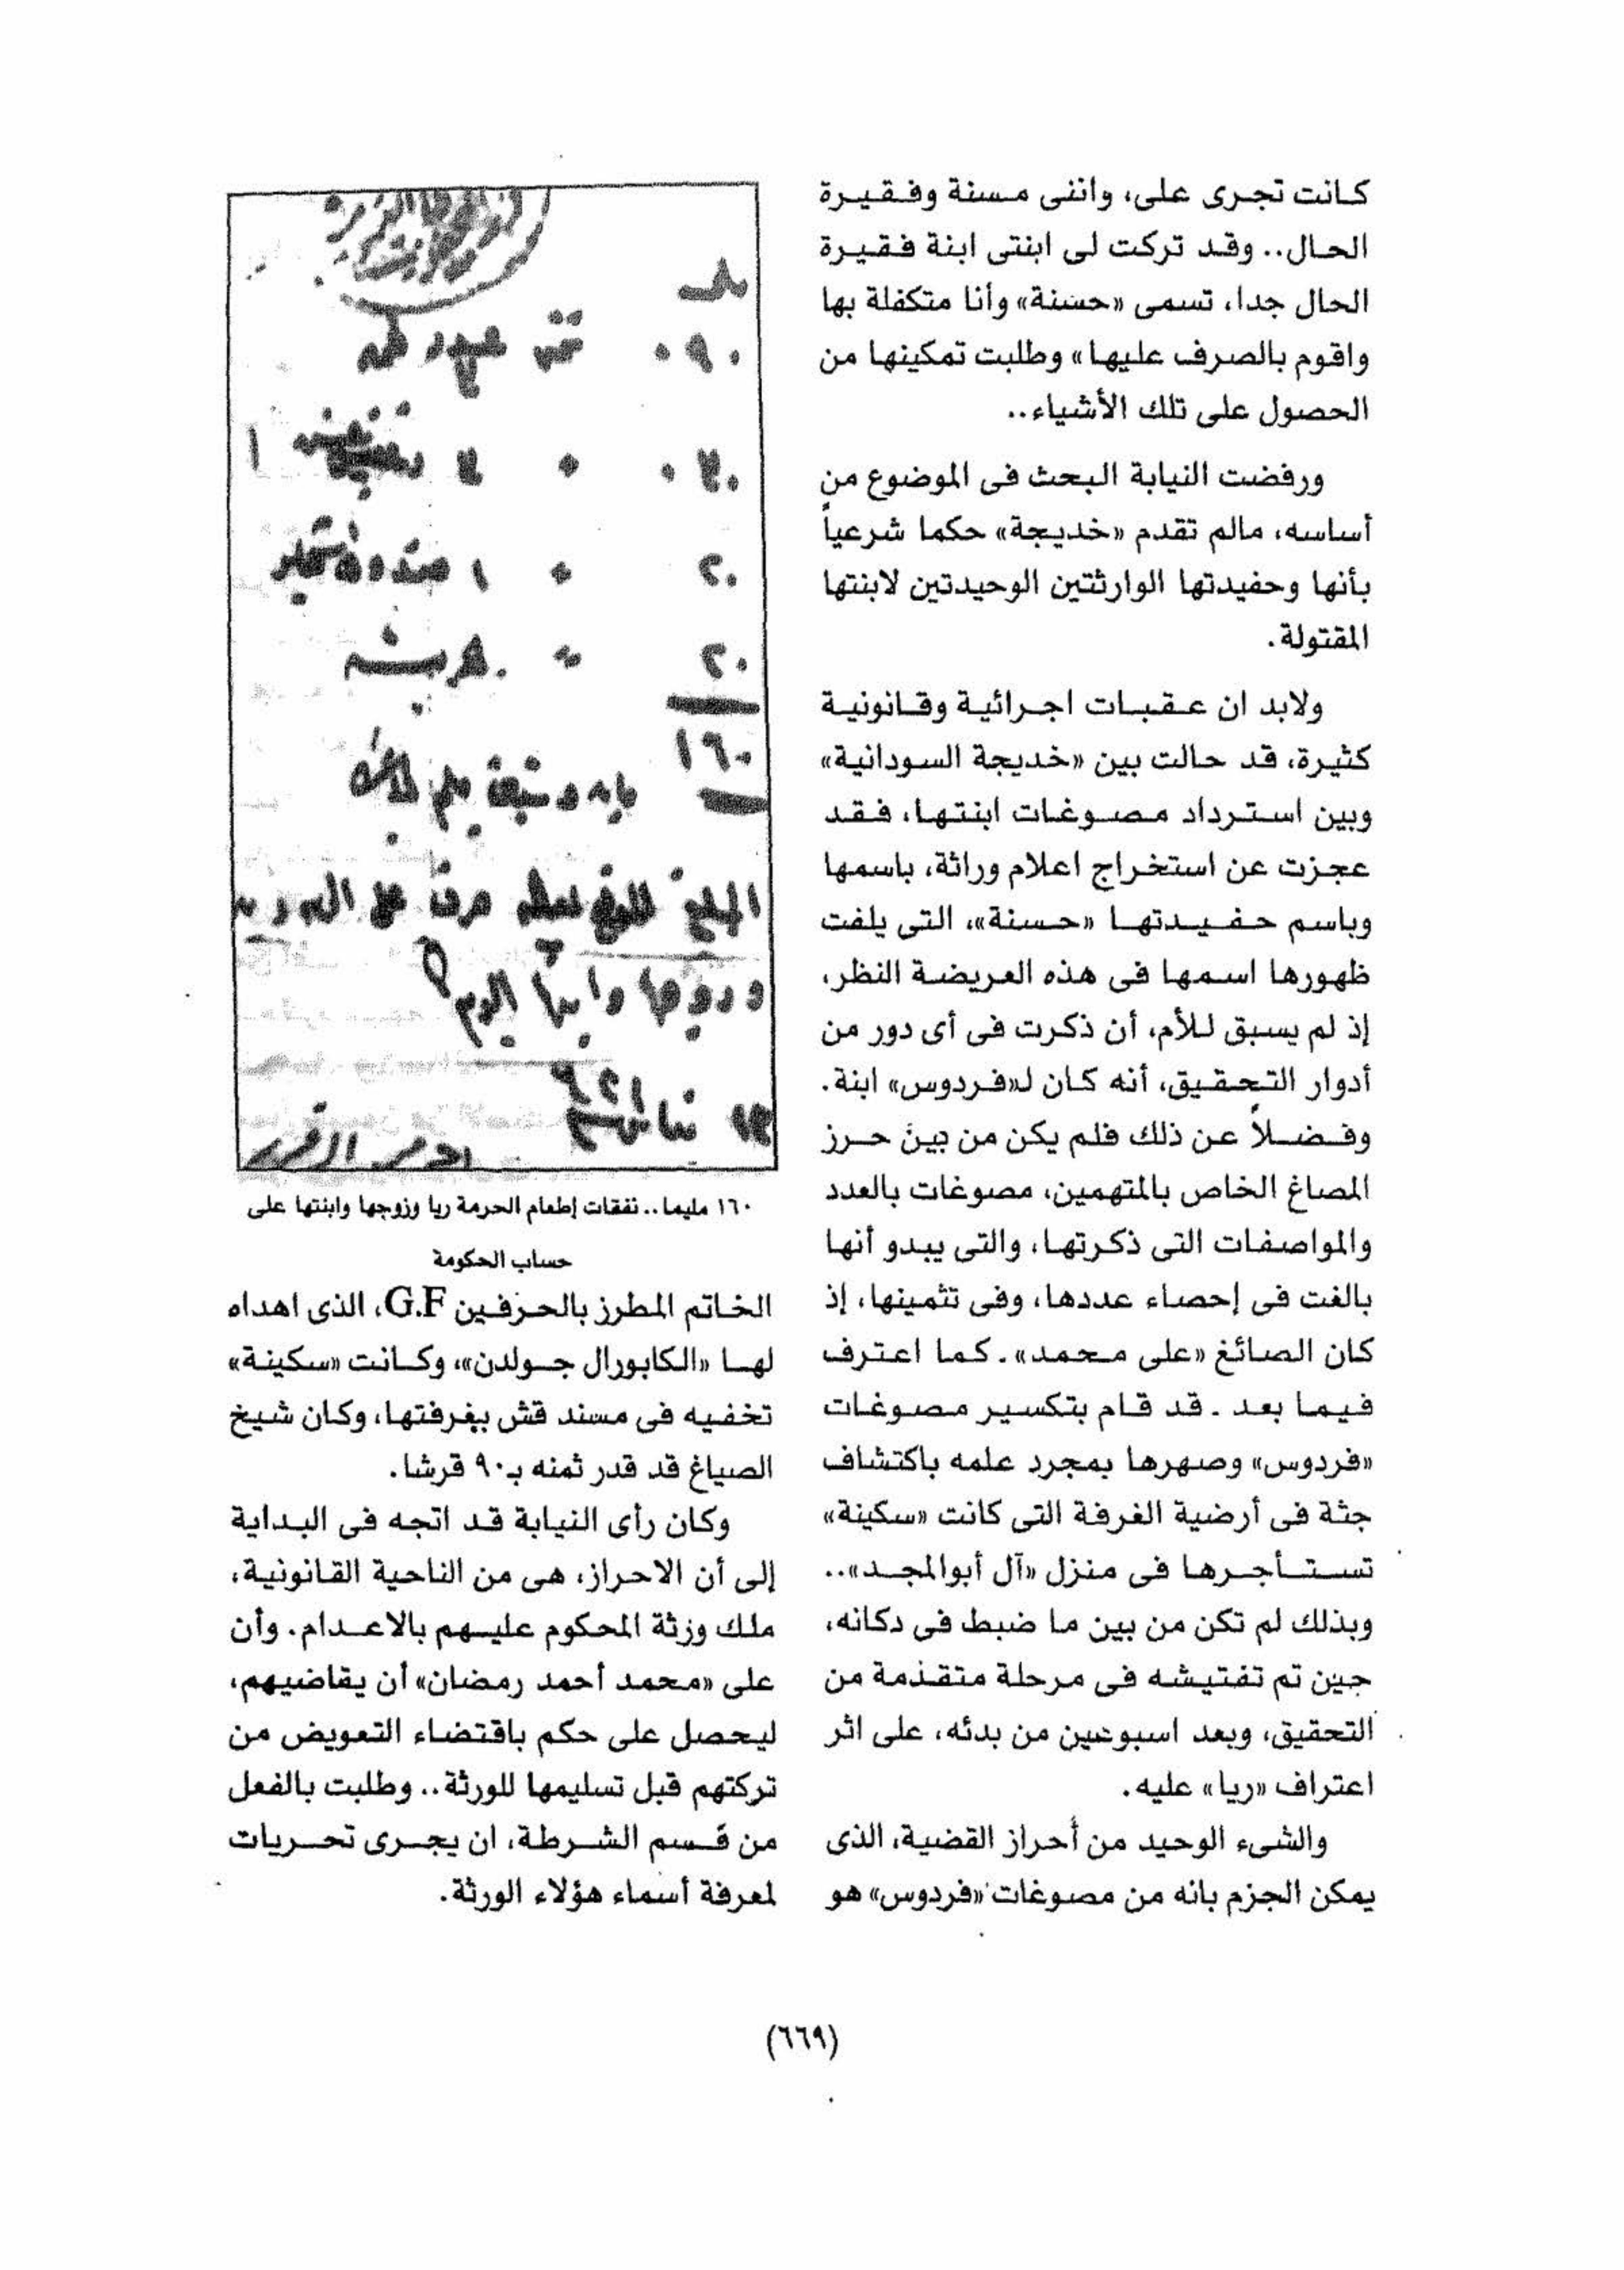 كانت تجرى على، واننى مسنة وفقيرة
الحال.. وقد تركت لى ابنتى ابنة فقيرة
الحال جدا، تسمى «حسنة» وأنا متكفلة بها
واقوم بالصرف عليها» وطلبت تمكينها من
الحصول على تلك الأشياء..
ورفضت النيابة البحث فى الموضوع من
أساسه، مالم تقدم «خديجة» حكما شرعياً
بأنها وحفيدتها الوارثتين الوحيدتين لابنتها
المقتولة.
ولابد ان عقبات اجرائية وقانونية
كثيرة، قد حالت بين «خديجة السودانية»
وبين استرداد مصوغات ابنتها، فقد
عجزت عن استخراج اعلام وراثة، باسمها
وباسم حفيدتها «حسنة»، التى يلفت
ظهورها اسمها فى هذه العريضة النظر،
إذ لم يسبق للأم، أن ذكرت فى أى دور من
أدوار التحقيق، أنه كان لـ«فردوس» ابنة.
وفضلاً عن ذلك فلم يكن من بين حرز
المصاغ الخاص بالمتهمين، مصوغات بالعدد
والمواصفات التى ذكرتها، والتى يبدو أنها
بالغت فى إحصاء عددها، وفى تثمينها، إذ
كان الصائغ «على محمد». كما اعترف
فيما بعد . قد قام بتكسير مصوغات
«فردوس» وصهرها بمجرد علمه باكتشاف
جثة فى أرضية الغرفة التى كانت «سكينة»
تستأجرها فى منزل «آل أبوالمجد»..
وبذلك لم تكن من بين ما ضبط فى دكانه،
حين تم تفتيشه فى مرحلة متقدمة من
التحقيق، وبعد اسبوعين من بدئه، على اثر
اعتراف «ريا» عليه.
والشىء الوحيد من أحراز القضية، الذى
يمكن الجزم بانه من مصوغات «فردوس» هو
٠٩٠ ثمن
٢٠
٢٠
١٦٠
المبلغ
وزوجها وابنتها اليوم
١٦٠ مليما.. نفقات إطعام الحرمة ريا وزوجها وابنتها على
حساب الحكومة
الخاتم المطرز بالحرفين G.F، الذى اهداه
لها «الكابورال جولدن»، وكانت «سكينة»
تخفيه فى مسند قش بغرفتها، وكان شيخ
الصياغ قد قدر ثمنه بـ٩٠ قرشا.
وكان رأى النيابة قد اتجه فى البداية
إلى أن الاحراز، هى من الناحية القانونية،
ملك ورثة المحكوم عليهم بالاعدام. وأن
على «محمد أحمد رمضان» أن يقاضيهم،
ليحصل على حكم باقتضاء التعويض من
تركتهم قبل تسليمها للورثة.. وطلبت بالفعل
من قسم الشرطة، ان يجرى تحريات
لمعرفة أسماء هؤلاء الورثة.
(٦٦٩)